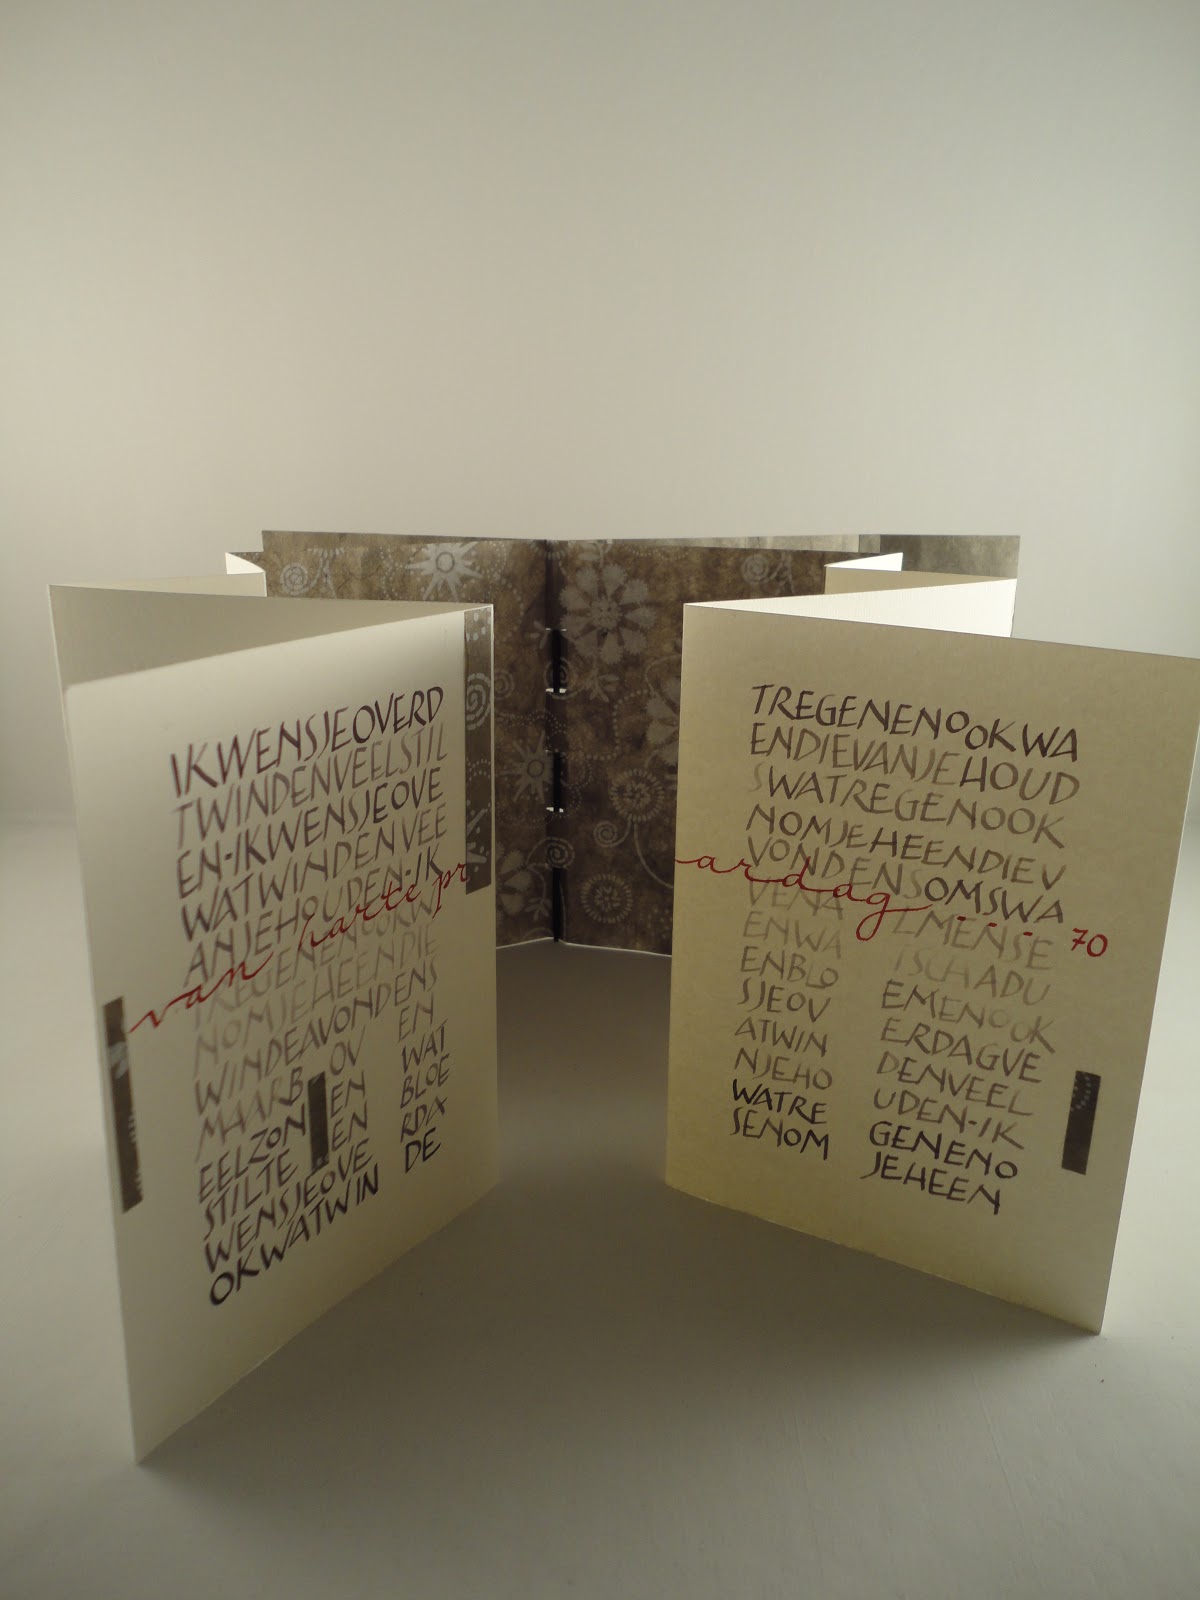 IKWENSJEOVERD
TWINDENVEELSTIL
EN-IKWENSJEOVE
WATWINDENVEE
ANJEHOUDEN-IK
TREGENENOOKW
NOMJEHEENDIE
WINDEAVONDENS
MAARB OV EN
EELZON EN WAT
STILTE EN BLOE
WENSJEOVE RDA
OKWATWIN DE
van harte pr
TREGENENOOKWA
ENDIEVANJEHOUD
SWATREGENOOK
NOMJEHEENDIEV
VONDENSOMSWA
VENA LMENSE
ENWA TSCHADU
ENBLO EMENOOK
SJEOV ERDAGVE
ATWIN DENVEEL
NJEHO UDEN-IK
WATRE GENENO
SENOM JEHEEN
ardag . . . 70